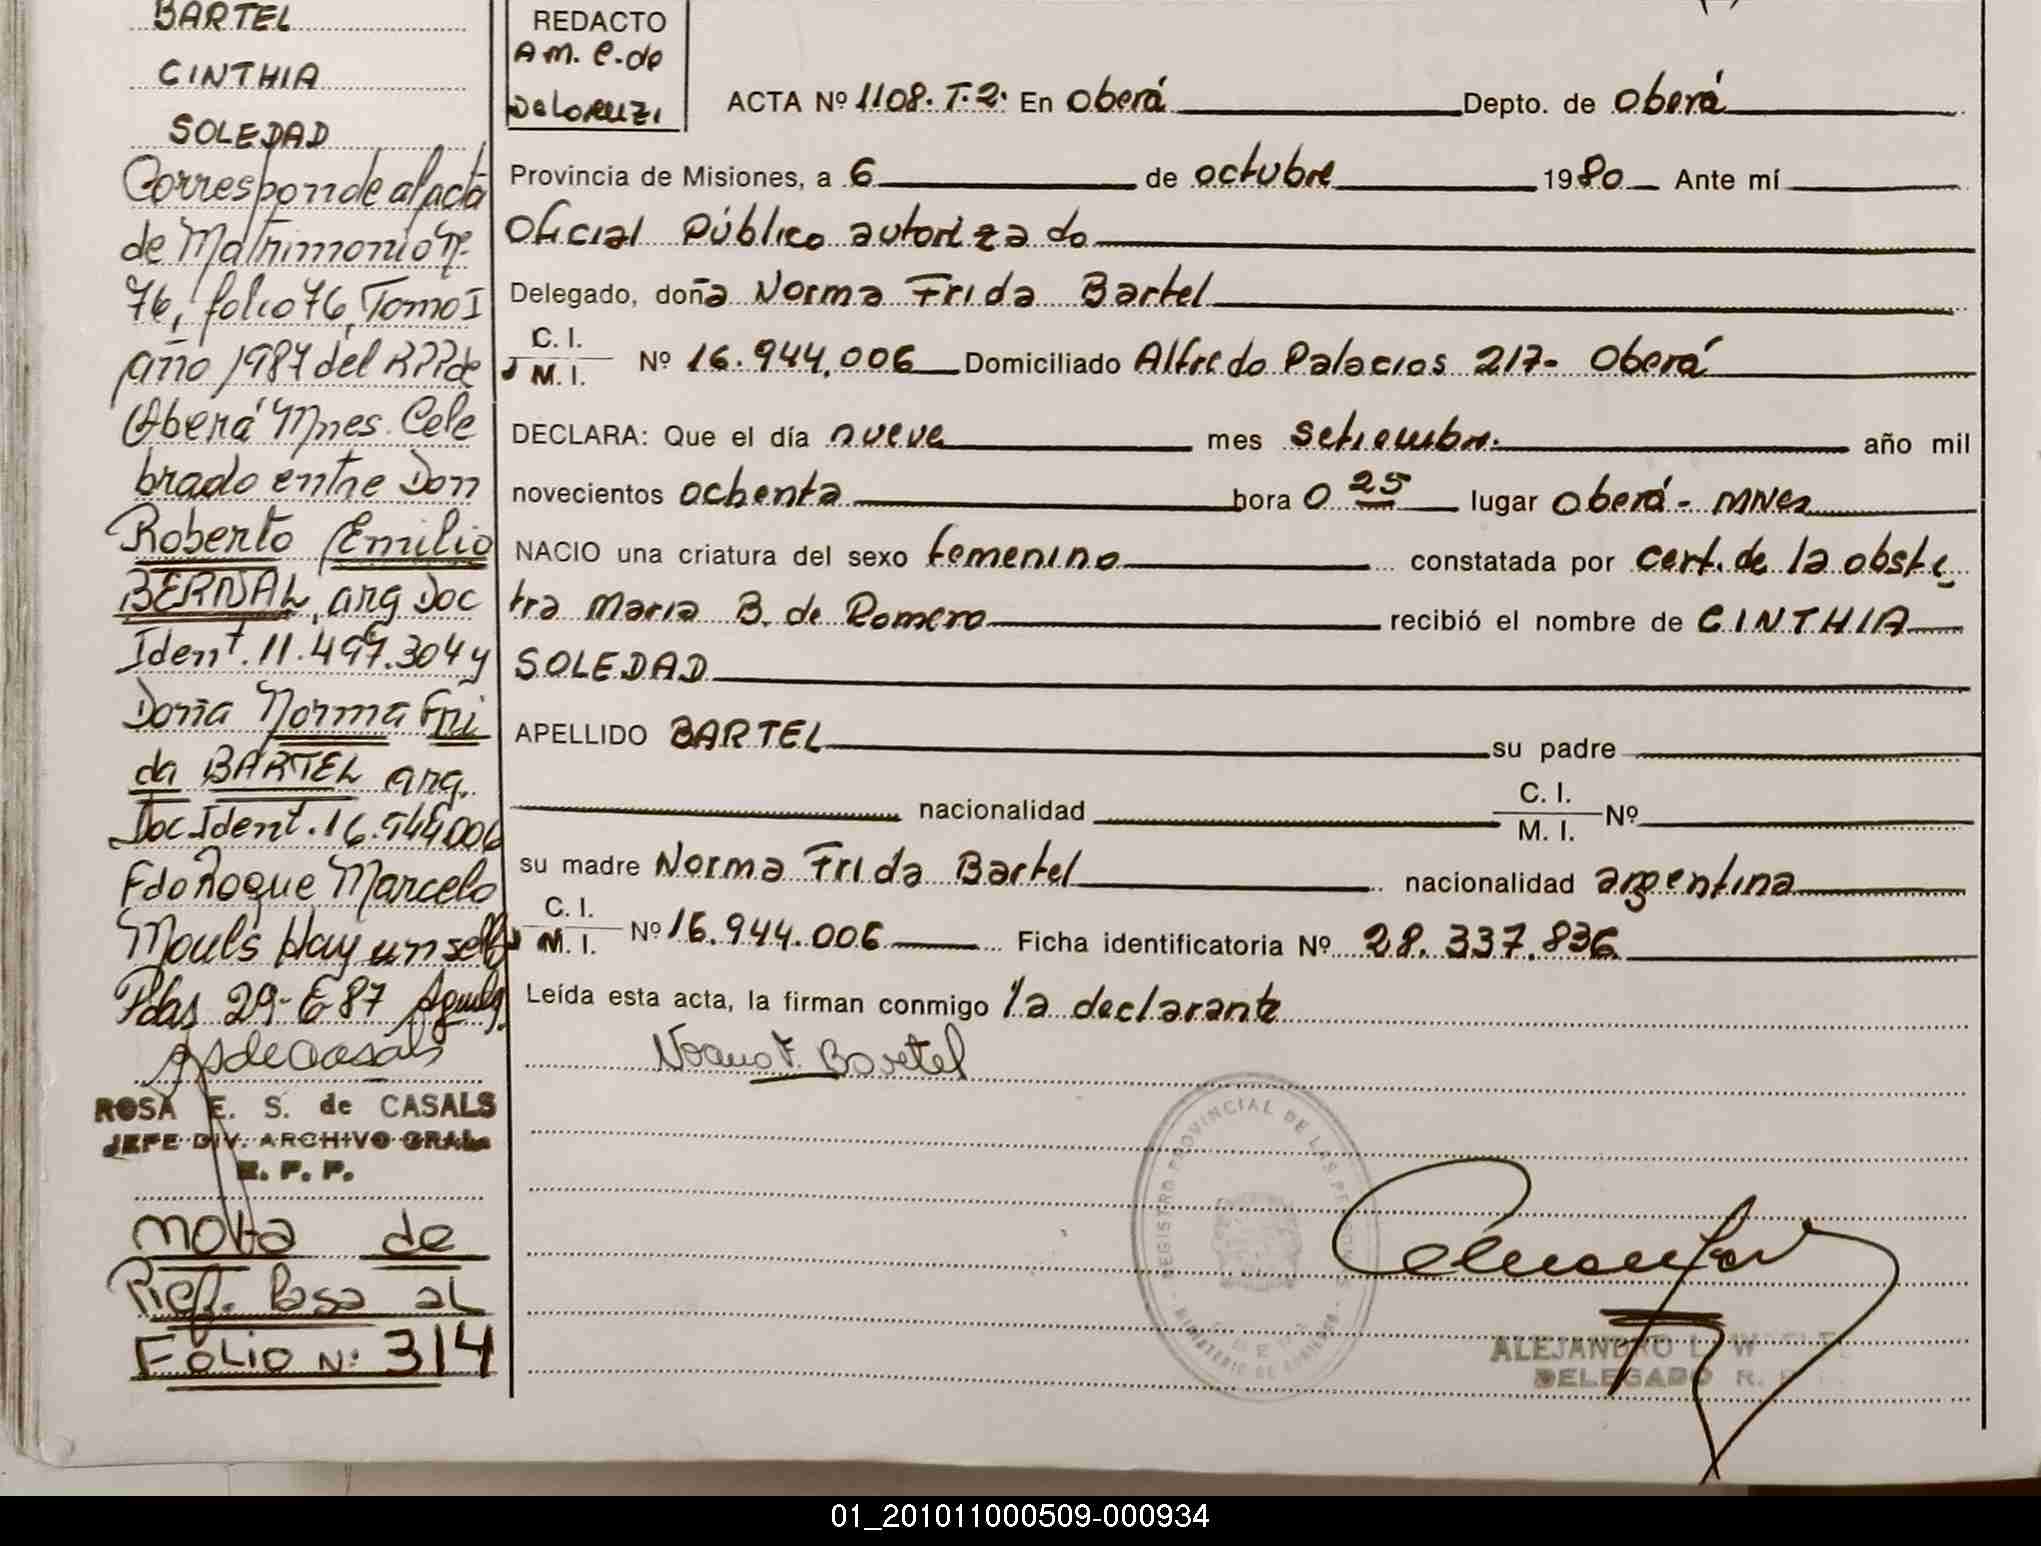 BARTEL
CINTHIA
SOLEDAD
Corresponde al acta
de Matrimonio Nº
76, folio 76, Tomo I
año 1987 del RPP de
Oberá Mnes. Cele
brado entre Don
Roberto Emilio
BERNAL, arg Doc
Ident. 11.497.304 y
Doña Norma Fri
da BARTEL arg.
Doc Ident. 16.944.006
Fdo Roque Marcelo
Hay un sello
Pdas 29-6-87
ROSA E. S. de CASALS
JEFE DIV. ARCHIVO GRAL.
R. P. P.
Nota de
Ref. Pasa al
FOLIO Nº 314
REDACTO
A m. C. de
DeLoruzi
ACTA Nº 1108. T. 2. En Oberá Depto. de Oberá
Provincia de Misiones, a 6 de octubre 1980 Ante mí
Oficial Público autorizado
Delegado, doña Norma Frida Bartel
C. I.
M. I. Nº 16.944.006 Domiciliado Alfredo Palacios 217- Oberá
DECLARA: Que el día nueve mes setiembre año mil
novecientos ochenta hora 0 25 lugar Oberá - MNes
NACIO una criatura del sexo femenino constatada por cert. de la obste
tra Maria B. de Romero recibió el nombre de CINTHIA
SOLEDAD
APELLIDO BARTEL su padre
nacionalidad C. I.
M. I. Nº
su madre Norma Frida Bartel nacionalidad argentina
C. I.
M. I. Nº 16.944.006 Ficha identificatoria Nº 28.337.836
Leída esta acta, la firman conmigo la declarante
Norma F. Bartel
REGISTRO PROVINCIAL DE LAS PERSONAS
MINISTERIO DE GOBIERNO
ALEJANDRO
DELEGADO R.
01_201011000509-000934